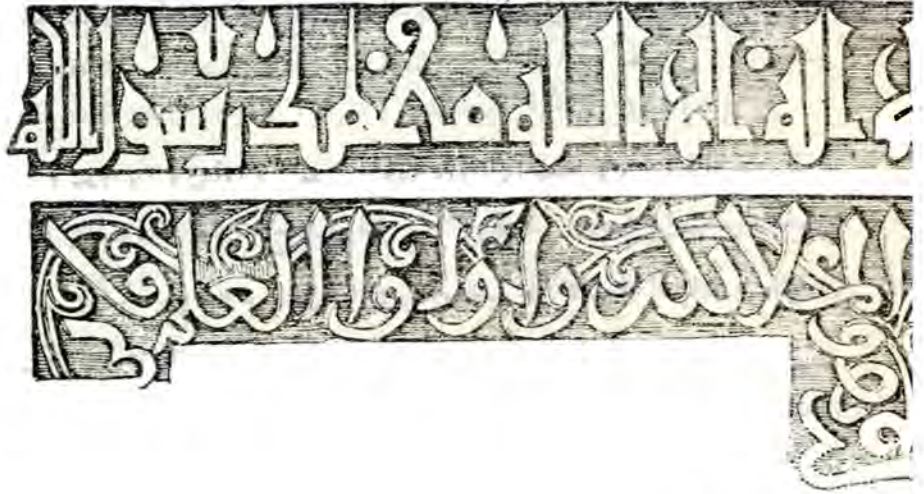 اله الا الله محمد رسول الله
الملائكة واولوا العلم